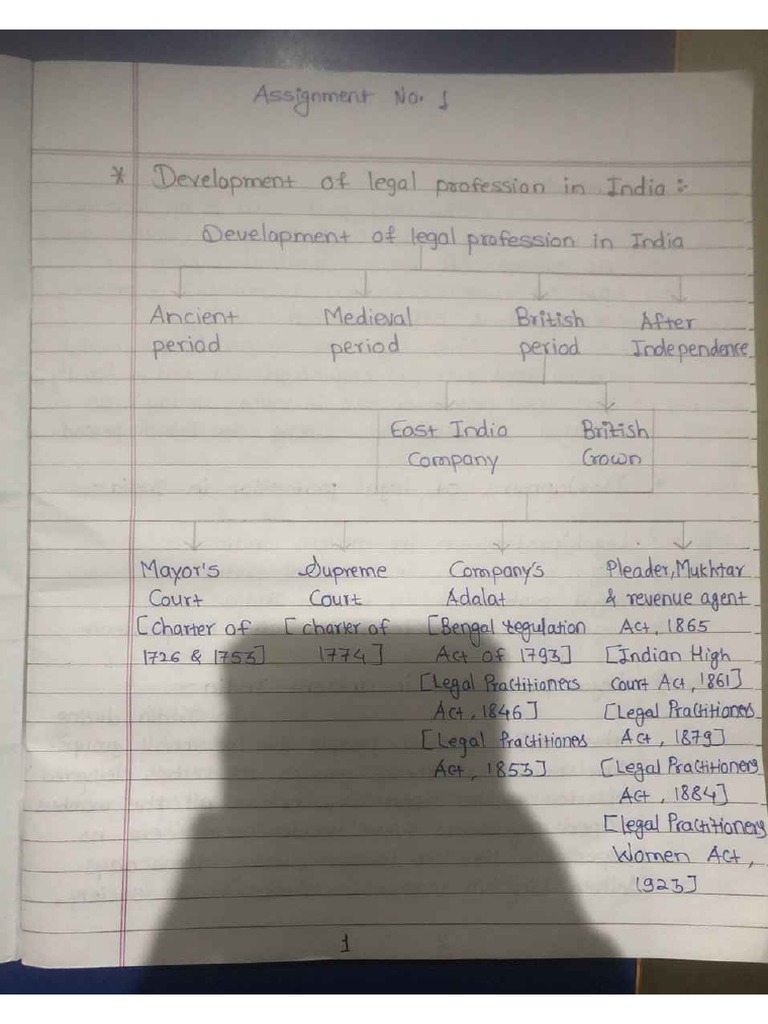 Assignment No. 1
* Development of legal profession in India :-
Development of legal profession in India
Ancient period
Medieval period
British period
After Independence
East India Company
British Crown
Mayor's Court
[charter of 1726 & 1753]
Supreme Court
[charter of 1774]
Company's Adalat
[Bengal regulation Act of 1793]
[Legal Practitioners Act, 1846]
[Legal Practitioners Act, 1853]
Pleader, Mukhtar & revenue agent Act, 1865
[Indian High Court Act, 1861]
[Legal Practitioners Act, 1879]
[Legal Practitioners Act, 1884]
[legal Practitioners Women Act, 1923]
1